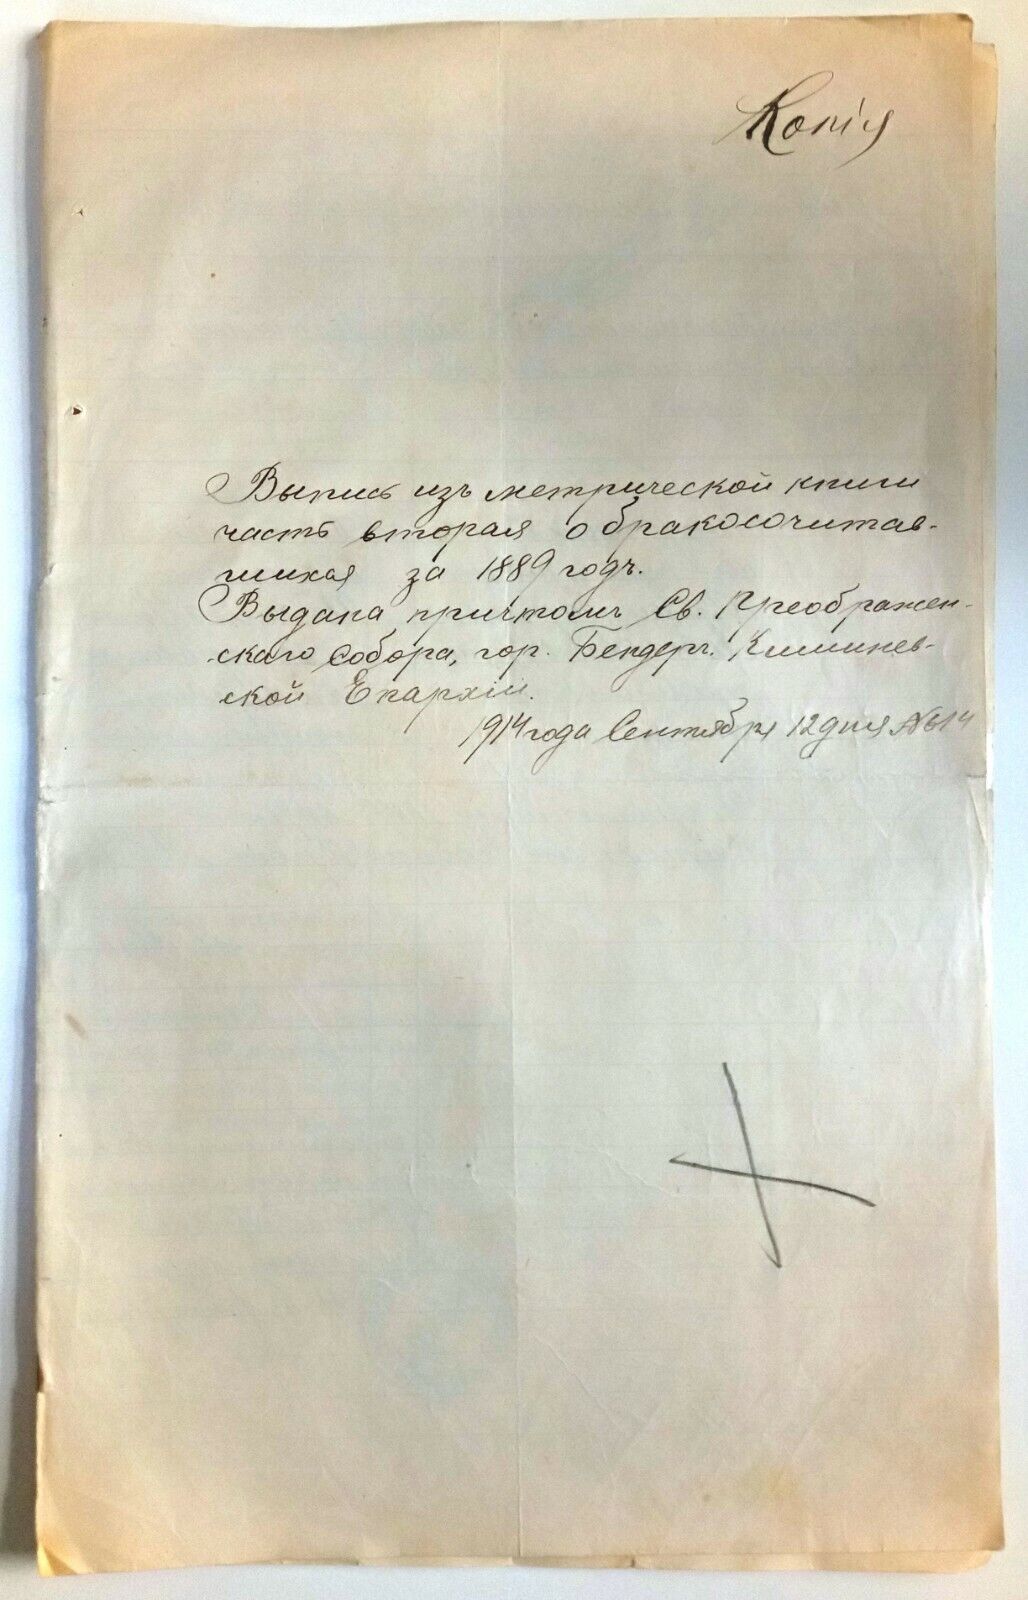 Копія
Выпись изъ метрической книги
часть вторая о бракосочитав-
шихся за 1889 годъ.
Выдана причтомъ Св. Преображен-
скаго Собора, гор. Бендеръ. Кишинев-
ской Епархіи.
1914 года Сентября 12 дня №614